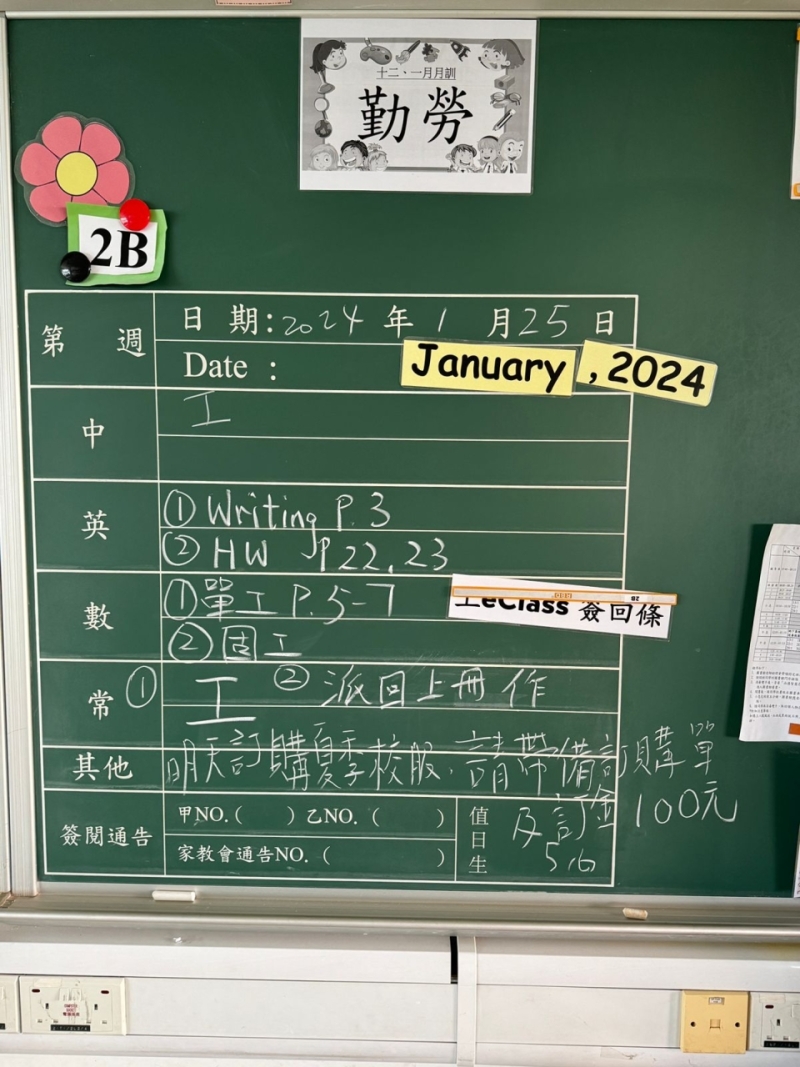 十二、一月月訓
勤勞
2B
第 週
日 期:2024 年 1 月 25 日
Date :
January , 2024
中
工
英
① Writing P.3
② HW P22,23
數
① 單工 P.5-7
上eClass 簽回條
② 固工
常
① 工 ② 派回上冊作
其他
明天訂購夏季校服，請帶備訂購單
及訂金100元
簽閱通告
甲NO.( ) 乙NO. ( )
家教會通告NO. ( )
值日生
5,6